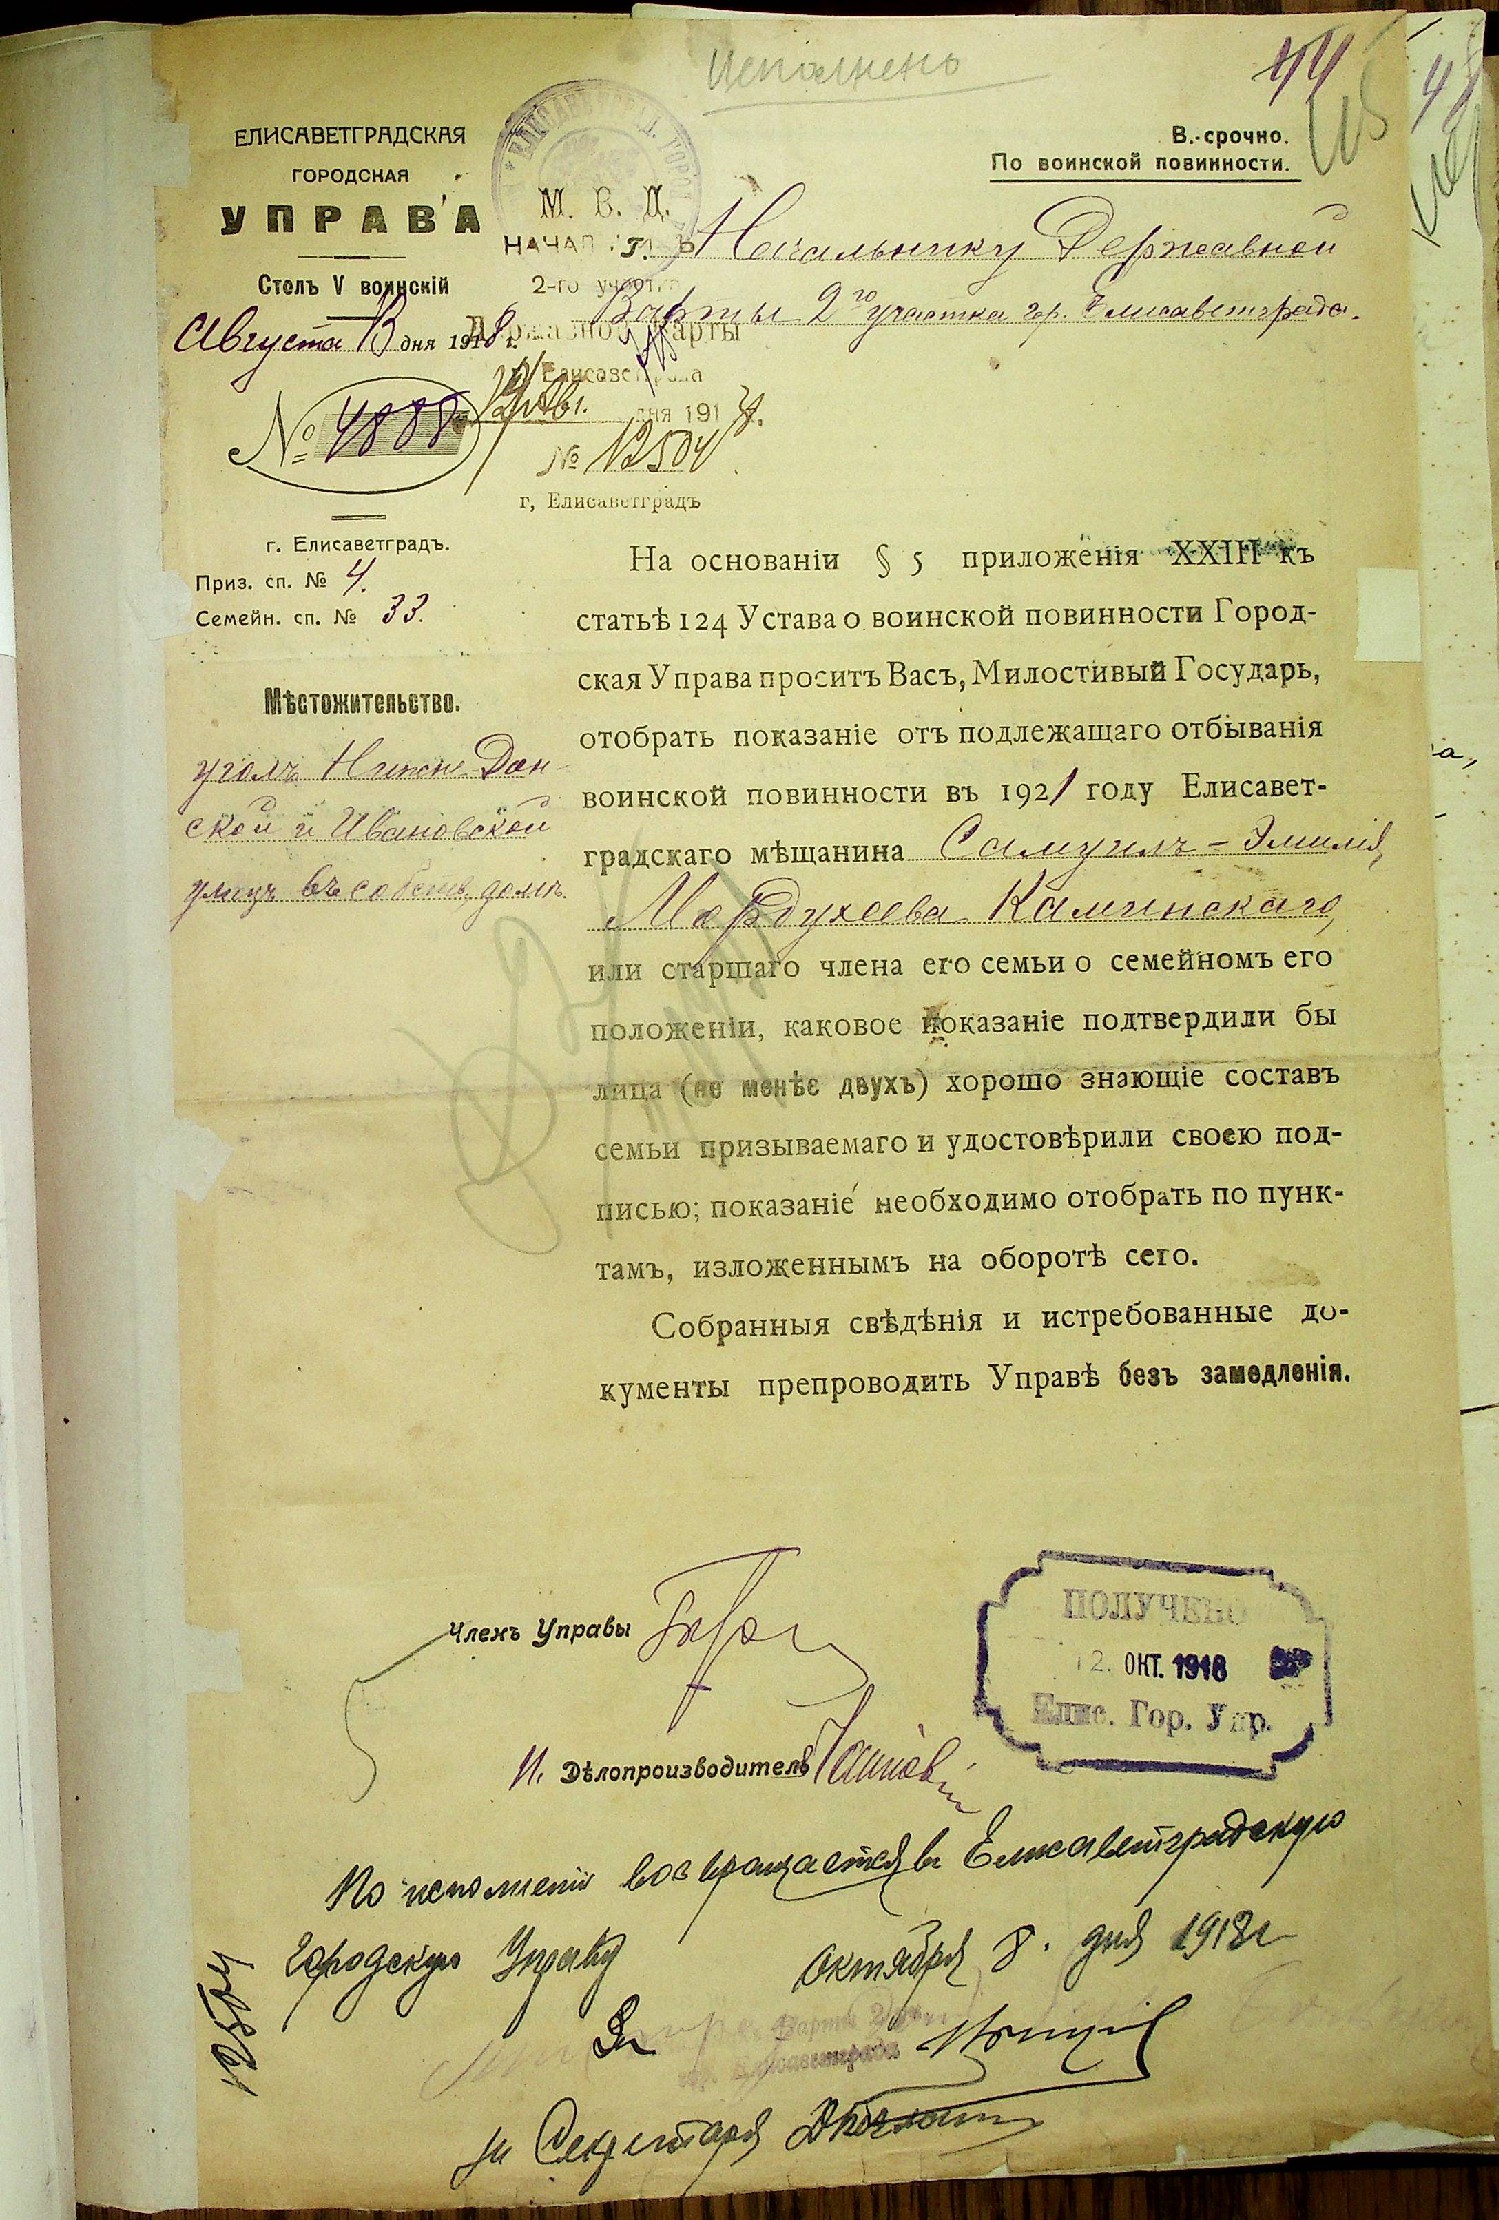 Исполнено
44
ЕЛИСАВЕТГРАДСКАЯ
ГОРОДСКАЯ
УПРАВА
Столъ V воинскій
Августа 13 дня 1918 г.
№ 4888
г. Елисаветградъ.
Приз. сп. № 4.
Семейн. сп. № 33.
Мѣстожительство.
уголъ Нижне Дон-
ской и Ивановской
улицъ въ собств. домѣ.
М. В. Д.
2-го участка
Державной Варты
г. Елисаветграда
дня 1918 г.
№ 12504
г, Елисаветградъ
В.-срочно.
По воинской повинности.
Г. Начальнику Державной
Варты 2го участка гор. Елисаветграда.
На основаніи § 5 приложенія XXIII къ
статьѣ 124 Устава о воинской повинности Город-
ская Управа проситъ Васъ, Милостивый Государь,
отобрать показаніе отъ подлежащаго отбыванія
воинской повинности въ 1921 году Елисавет-
градскаго мѣщанина Самуилъ-Эмилія,
Мордухеева Каминскаго,
или старшаго члена его семьи о семейномъ его
положеніи, каковое показаніе подтвердили бы
лица (не менѣе двухъ) хорошо знающіе составъ
семьи призываемаго и удостовѣрили своею под-
писью; показаніе необходимо отобрать по пунк-
тамъ, изложеннымъ на оборотѣ сего.
Собранныя свѣдѣнія и истребованные до-
кументы препроводить Управѣ безъ замедленія.
Членъ Управы
ПОЛУЧЕНО
12. ОКТ. 1918
Елис. Гор. Упр.
И. Дѣлопроизводитель
По исполнении возвращается въ Елисаветградскую
Городскую Управу октября 8. дня 1918 г.
12504
За
Варты
гор. Елисаветграда
за Секретаря